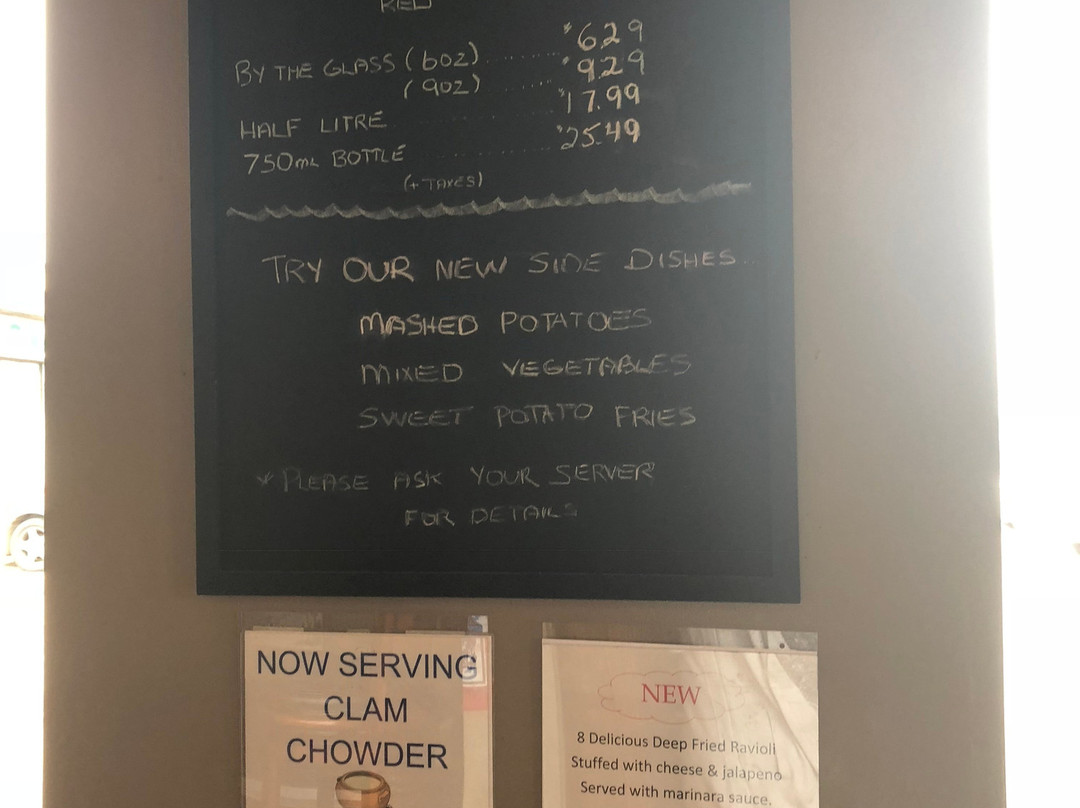 RED
BY THE GLASS (6oz) ........ $6.29
(9oz) ...... $9.29
HALF LITRE ............ $17.99
750mL BOTTLE ............ $25.49
(+ TAXES)
TRY OUR NEW SIDE DISHES...
MASHED POTATOES
MIXED VEGETABLES
SWEET POTATO FRIES
* PLEASE ASK YOUR SERVER
FOR DETAILS
NOW SERVING
CLAM
CHOWDER
NEW
8 Delicious Deep Fried Ravioli
Stuffed with cheese & jalapeno
Served with marinara sauce.